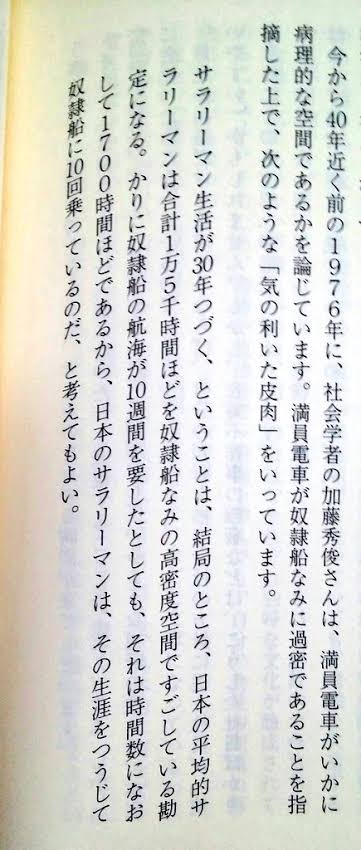 今から40年近く前の1976年に、社会学者の加藤秀俊さんは、満員電車がいかに
病理的な空間であるかを論じています。満員電車が奴隷船なみに過密であることを指
摘した上で、次のような「気の利いた皮肉」をいっています。
サラリーマン生活が30年つづく、ということは、結局のところ、日本の平均的サ
ラリーマンは合計1万5千時間ほどを奴隷船なみの高密度空間ですごしている勘
定になる。かりに奴隷船の航海が10週間を要したとしても、それは時間数になお
して1700時間ほどであるから、日本のサラリーマンは、その生涯をつうじて
奴隷船に10回乗っているのだ、と考えてもよい。